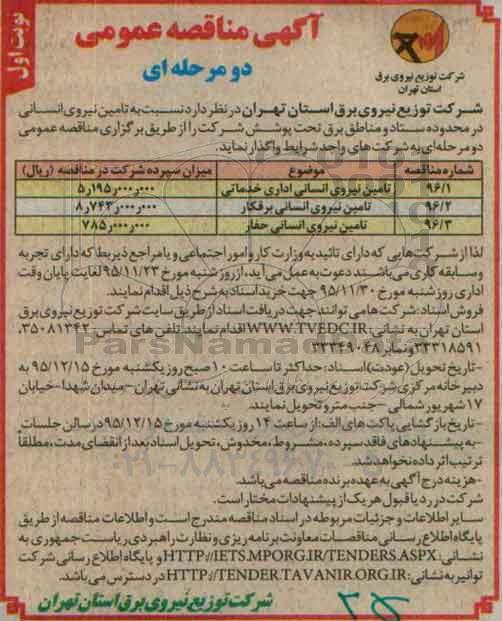 نوبت اول
آگهی مناقصه عمومی
دو مرحله ای
شرکت توزیع نیروی برق
استان تهران
شرکت توزیع نیروی برق استان تهران در نظر دارد نسبت به تامین نیروی انسانی
در محدوده ستاد و مناطق برق تحت پوشش شرکت را از طریق برگزاری مناقصه عمومی
دو مرحله‌ای به شرکت های واجد شرایط واگذار نماید.
شماره مناقصه موضوع میزان سپرده شرکت در مناقصه (ریال)
۹۶/۱ تامین نیروی انسانی اداری خدماتی ۵٫۱۹۵٫۰۰۰٫۰۰۰
۹۶/۲ تامین نیروی انسانی برقکار ۸٫۷۴۳٫۰۰۰٫۰۰۰
۹۶/۳ تامین نیروی انسانی حفار ۷۸۵٫۰۰۰٫۰۰۰
لذا از شرکت‌هایی که دارای تائیدیه وزارت کار و امور اجتماعی و یا مراجع ذیربط که دارای تجربه
و سابقه کاری می‌باشند دعوت به عمل می‌آید، از روز شنبه مورخ ۹۵/۱۱/۲۳ لغایت پایان وقت
اداری روز شنبه مورخ ۹۵/۱۱/۳۰ جهت خرید اسناد به شرح ذیل اقدام نمایند.
فروش اسناد: شرکت‌ها می‌توانند جهت دریافت اسناد از طریق سایت شرکت توزیع نیروی برق
استان تهران به نشانی: WWW.TVEDC.IR اقدام نمایند. تلفن های تماس: ۳۵۰۸۱۳۴۲،
۳۳۳۱۸۵۹۱ و نمابر ۳۳۳۴۹۰۴۸
-تاریخ تحویل (عودت) اسناد: حداکثر تا ساعت ۱۰ صبح روز یکشنبه مورخ ۹۵/۱۲/۱۵ به
دبیرخانه مرکزی شرکت توزیع نیروی برق استان تهران به نشانی تهران - میدان شهدا - خیابان
۱۷ شهریور شمالی - جنب مترو تحویل نمایند.
-تاریخ بازگشایی پاکت های الف: از ساعت ۱۴ روز یکشنبه مورخ ۹۵/۱۲/۱۵ در سالن جلسات
-به پیشنهادهای فاقد سپرده، مشروط، مخدوش، تحویل اسناد بعد از انقضای مدت، مطلقاً
ترتیب اثر داده نخواهد شد.
-هزینه درج آگهی به عهده برنده مناقصه می‌باشد.
شرکت در رد یا قبول هر یک از پیشنهادات مختار است.
سایر اطلاعات و جزئیات مربوطه در اسناد مناقصه مندرج است و اطلاعات مناقصه از طریق
پایگاه اطلاع رسانی مناقصات معاونت برنامه ریزی و نظارت راهبردی ریاست جمهوری به
نشانی: HTTP://IETS.MPORG.IR/TENDERS.ASPX و پایگاه اطلاع رسانی شرکت
توانیر به نشانی: HTTP://TENDER.TAVANIR.ORG.IR در دسترس می باشد.
شرکت توزیع نیروی برق استان تهران